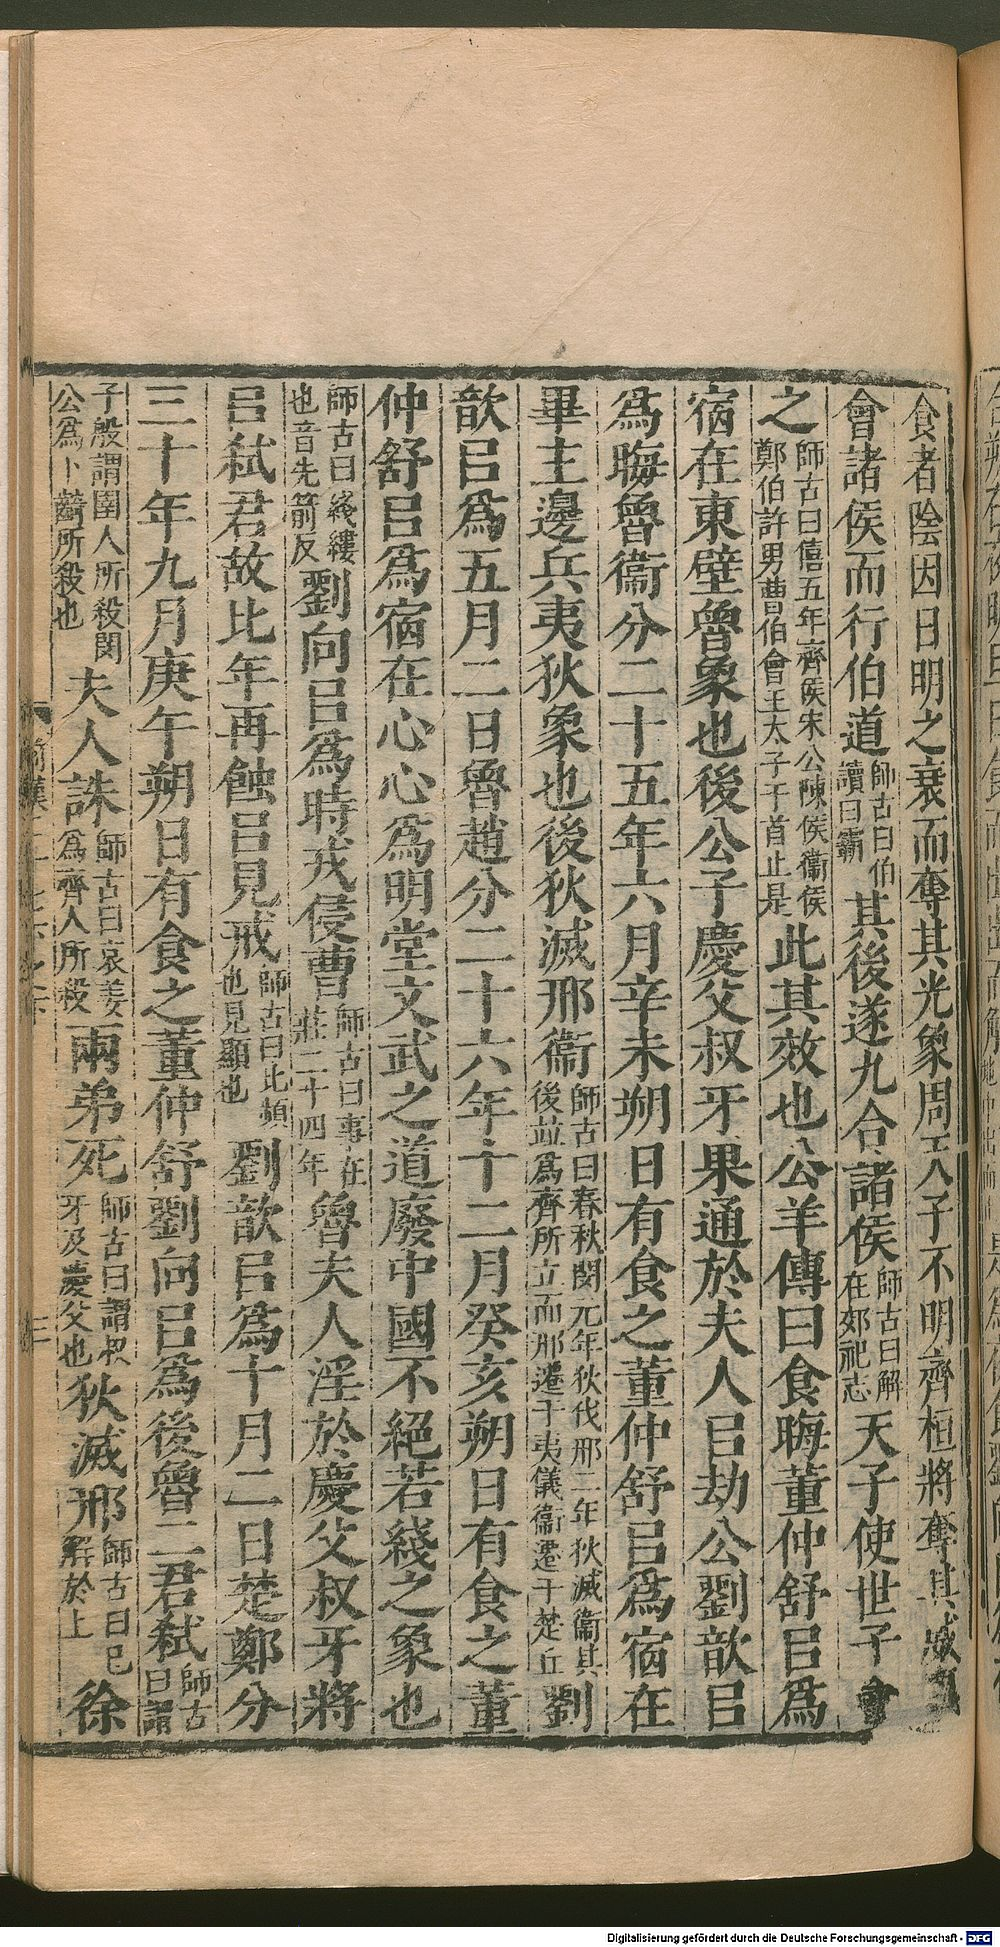 食者陰因日明之衰而奪其光象周天子不明齊桓將奪其威
會諸侯而行伯道師古曰伯讀曰霸其後遂九合諸侯師古曰解在郊祀志天子使世子會
之師古曰僖五年齊侯宋公陳侯衞侯鄭伯許男曹伯會王太子于首止是此其效也公羊傳曰食晦董仲舒㠯爲
宿在東壁魯象也後公子慶父叔牙果通於夫人㠯劫公劉歆㠯
爲晦魯衞分二十五年六月辛未朔日有食之董仲舒㠯爲宿在
畢主邊兵夷狄象也後狄滅邢衞師古曰春秋閔元年狄伐邢二年狄滅衞其後並爲齊所立而邢遷于夷儀衞遷于楚丘劉
歆㠯爲五月二日魯趙分二十六年十二月癸亥朔日有食之董
仲舒㠯爲宿在心心爲明堂文武之道廢中國不絕若綫之象也
師古曰綫縷也音先箭反劉向㠯爲時戎侵曹師古曰事在莊二十四年魯夫人淫於慶父叔牙將
㠯弒君故比年再蝕㠯見戒師古曰此頻也見顯也劉歆㠯爲十月二日楚鄭分
三十年九月庚午朔日有食之董仲舒劉向㠯爲後魯二君弒師古曰謂
子般謂圉人所殺閔公爲卜齮所殺也夫人誅師古曰哀姜爲齊人所殺兩弟死師古曰謂叔牙及慶父也狄滅邢師古曰已解於上徐
Digitalisierung gefördert durch die Deutsche Forschungsgemeinschaft - DFG